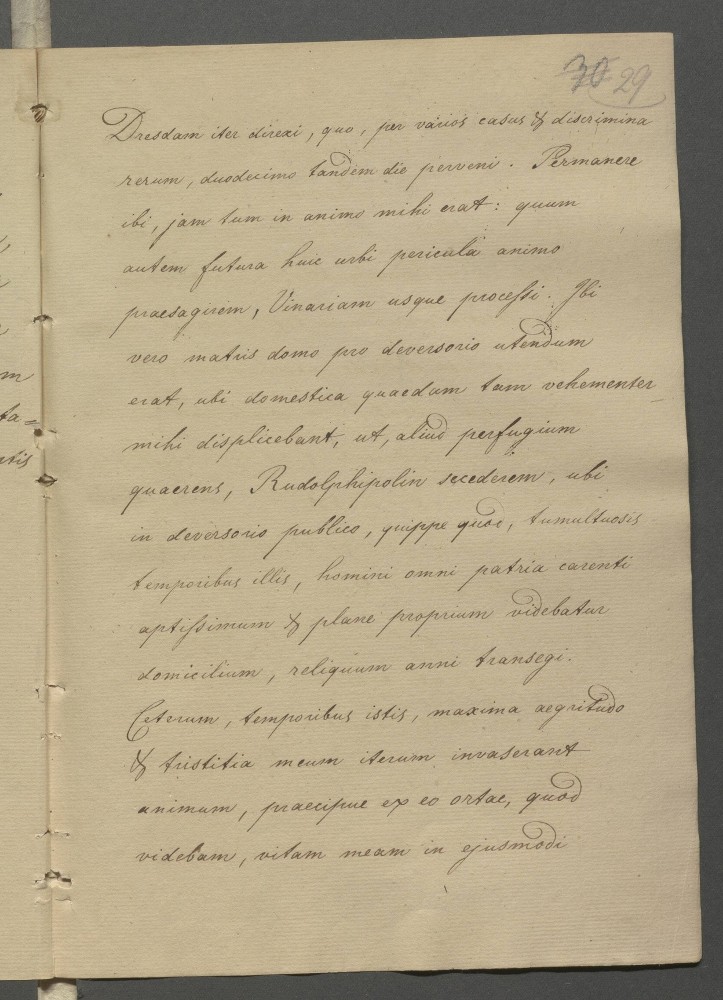 70 29
Dresdam iter direxi, quo, per varios casus & discrimina
rerum, duodecimo tandem die perveni. Permanere
ibi, jam tum in animo mihi erat: quum
autem futura huic urbi pericula animo
praesagirem, Vinariam usque processi. Ibi
vero matris domo pro deversorio utendum
erat, ubi domestica quaedam tam vehementer
mihi displicebant, ut, aliud perfugium
quaerens, Rudolphipolin secederem, ubi
in deversorio publico, quippe quod, tumultuosis
temporibus illis, homini omni patria carenti
aptissimum & plane proprium videbatur
domicilium, reliquum anni transegi.
Ceterum, temporibus istis, maxima aegritudo
& tristitia meum iterum invaserant
animum, praecipue ex eo ortae, quod
videbam, vitam meam in ejusmodi
m
ta=
ntis